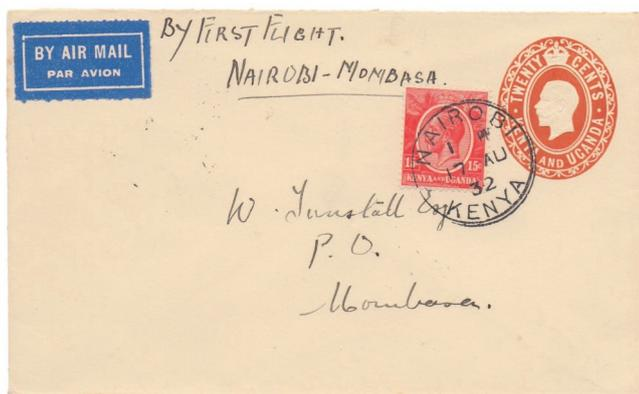 BY AIR MAIL
PAR AVION
BY FIRST FLIGHT.
NAIROBI - MOMBASA.
TWENTY CENTS
AND UGANDA
15c 15c
KENYA AND UGANDA
NAIROBI
1 P
17 AU
32
KENYA
W. Tunstall Esq
P. O.
Mombasa.